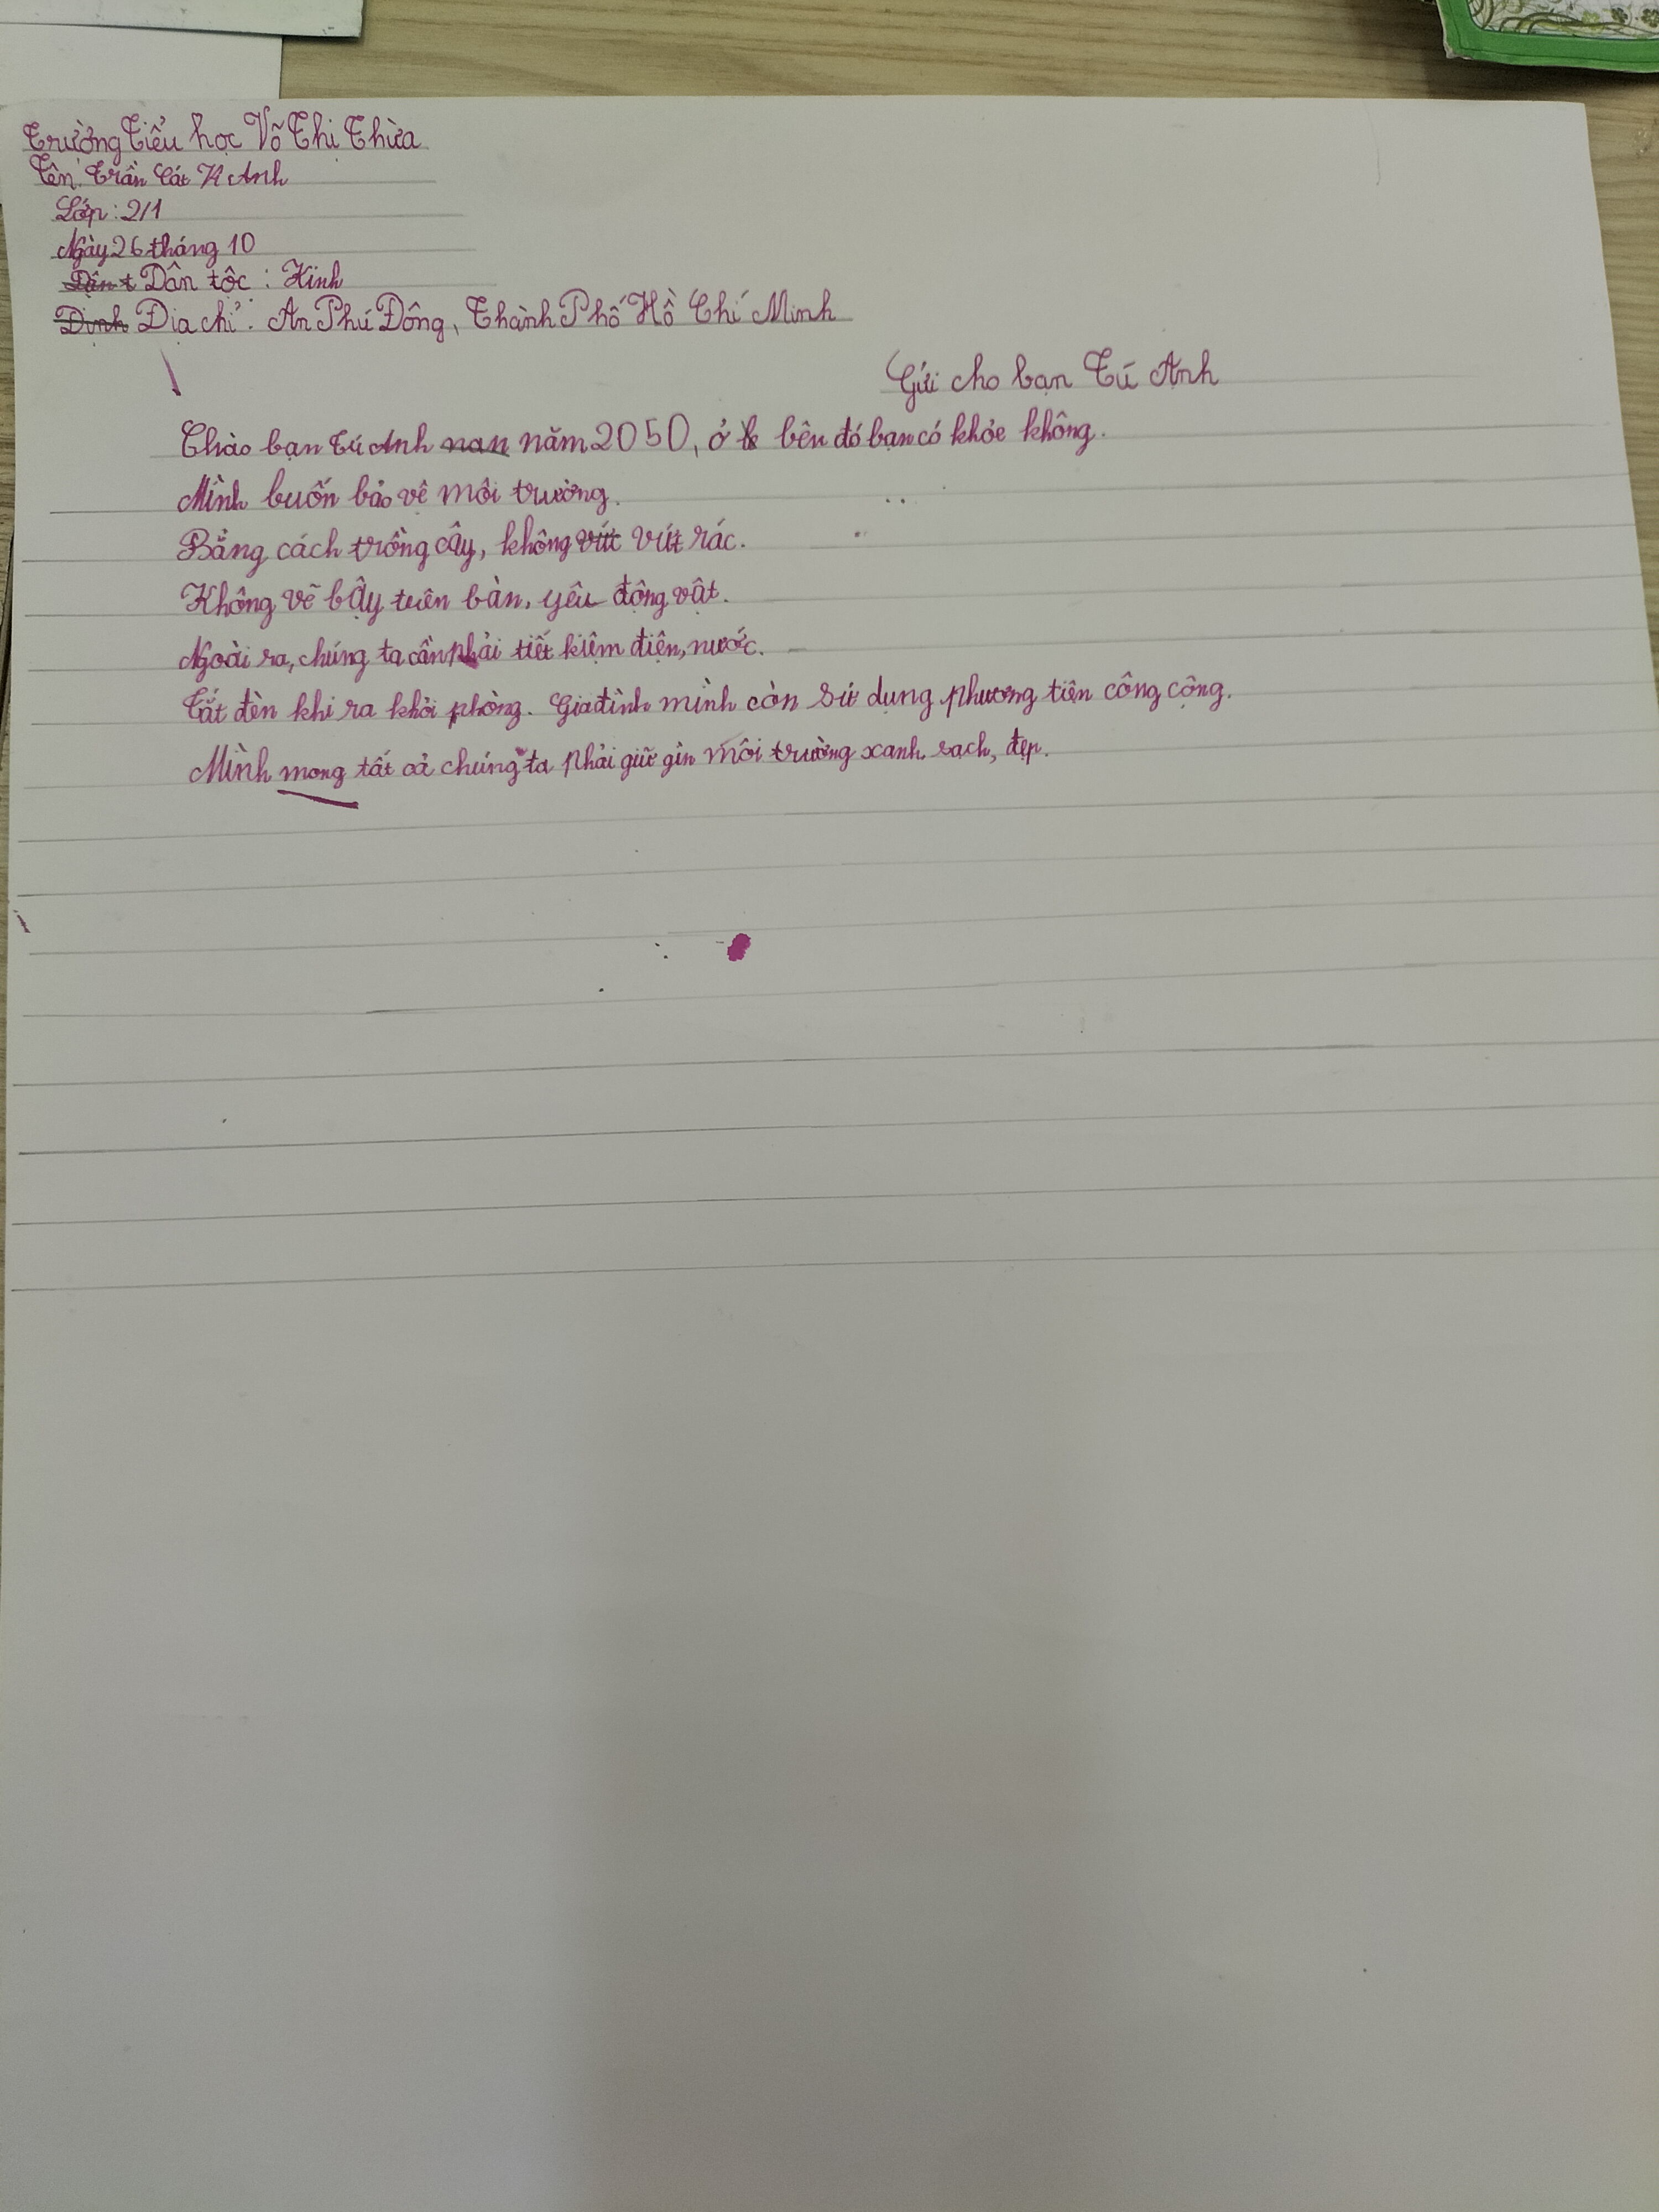 Trường Tiểu học Võ Thị Thừa
Tên: Trần Cát Kì Anh
Lớp: 2/1
Ngày 26 tháng 10
Dân t Dân tộc: Kinh
Định Địa chỉ: An Phú Đông, Thành Phố Hồ Chí Minh
Gửi cho bạn Tú Anh
Chào bạn Tú Anh nan năm 2050, ở bên đó bạn có khỏe không.
Mình buốn bảo vệ môi trường.
Bằng cách trồng cây, không vứt vứt rác.
Không vẽ bậy trên bàn, yêu động vật.
Ngoài ra, chúng ta cần phải tiết kiệm điện, nước.
Tắt đèn khi ra khỏi phòng. Gia đình mình còn sử dụng phương tiện công cộng.
Mình mong tất cả chúng ta phải giữ gìn môi trường xanh, sạch, đẹp.